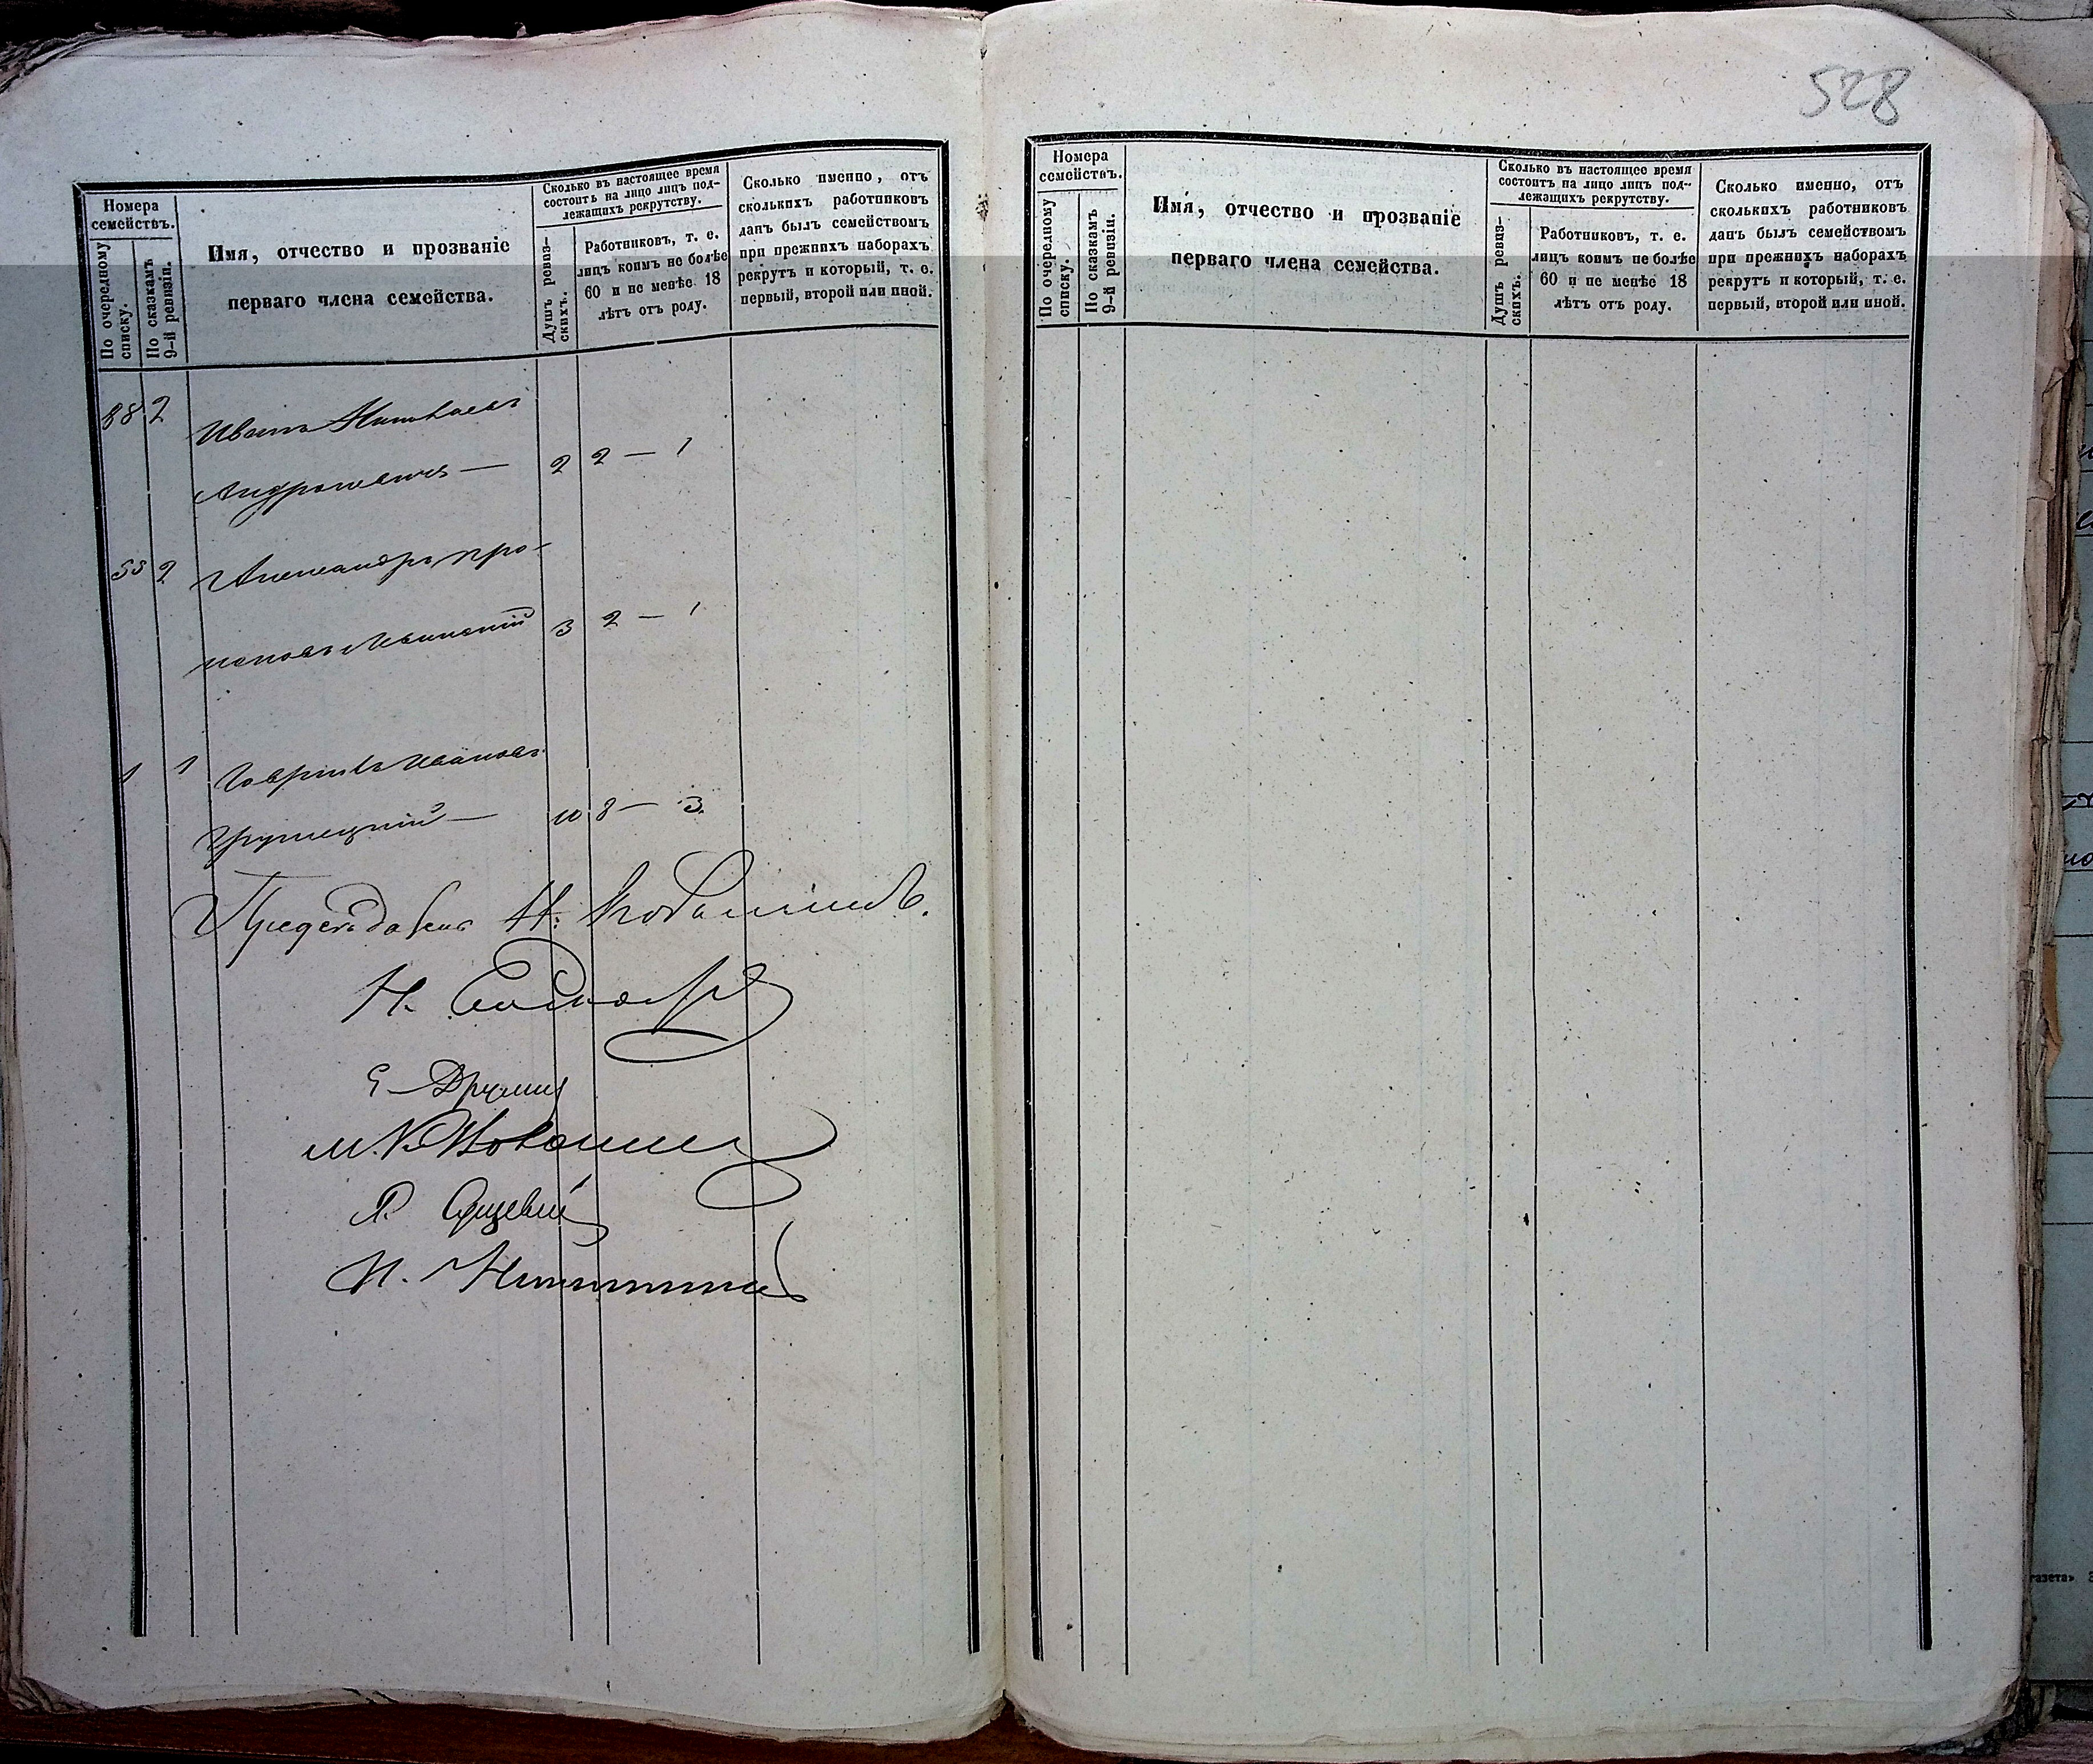 528
Номера
семействъ.
По очередному
списку.
По сказкамъ
9-й ревизіи.
Имя, отчество и прозваніе
перваго члена семейства.
Сколько въ настоящее время
состоитъ на лицо лицъ под-
лежащихъ рекрутству.
Душъ ревиз-
скихъ.
Работниковъ, т. е.
лицъ коимъ не болѣе
60 и не менѣе 18
лѣтъ отъ роду.
Сколько именно, отъ
сколькихъ работниковъ
данъ былъ семействомъ
при прежнихъ наборахъ
рекрутъ и который, т. е.
первый, второй или иной.
88 2
Иванъ Николаевъ
2 2 — 1
2 Александръ Про-
3 2 — 1
1 1 Гавріилъ Ивановъ
10 8 — 3.
Предсѣдатель Н.
Н.
М.
И.
Номера
семействъ.
По очередному
списку.
По сказкамъ
9-й ревизіи.
Имя, отчество и прозваніе
перваго члена семейства.
Сколько въ настоящее время
состоитъ на лицо лицъ под-
лежащихъ рекрутству.
Душъ ревиз-
скихъ.
Работниковъ, т. е.
лицъ коимъ не болѣе
60 и не менѣе 18
лѣтъ отъ роду.
Сколько именно, отъ
сколькихъ работниковъ
данъ былъ семействомъ
при прежнихъ наборахъ
рекрутъ и который, т. е.
первый, второй или иной.